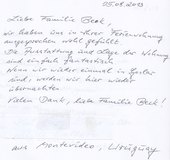 05.09.2013
Liebe Familie Beck,
wir haben uns in Ihrer Ferienwohnung
ausgesprochen wohl gefühlt.
Die Ausstattung und Lage der Wohnung
sind einfach fantastisch.
Wenn wir wieder einmal in
sind, werden wir hier wieder
übernachten.
Vielen Dank, liebe Familie Beck!
aus Montevideo, Uruguay